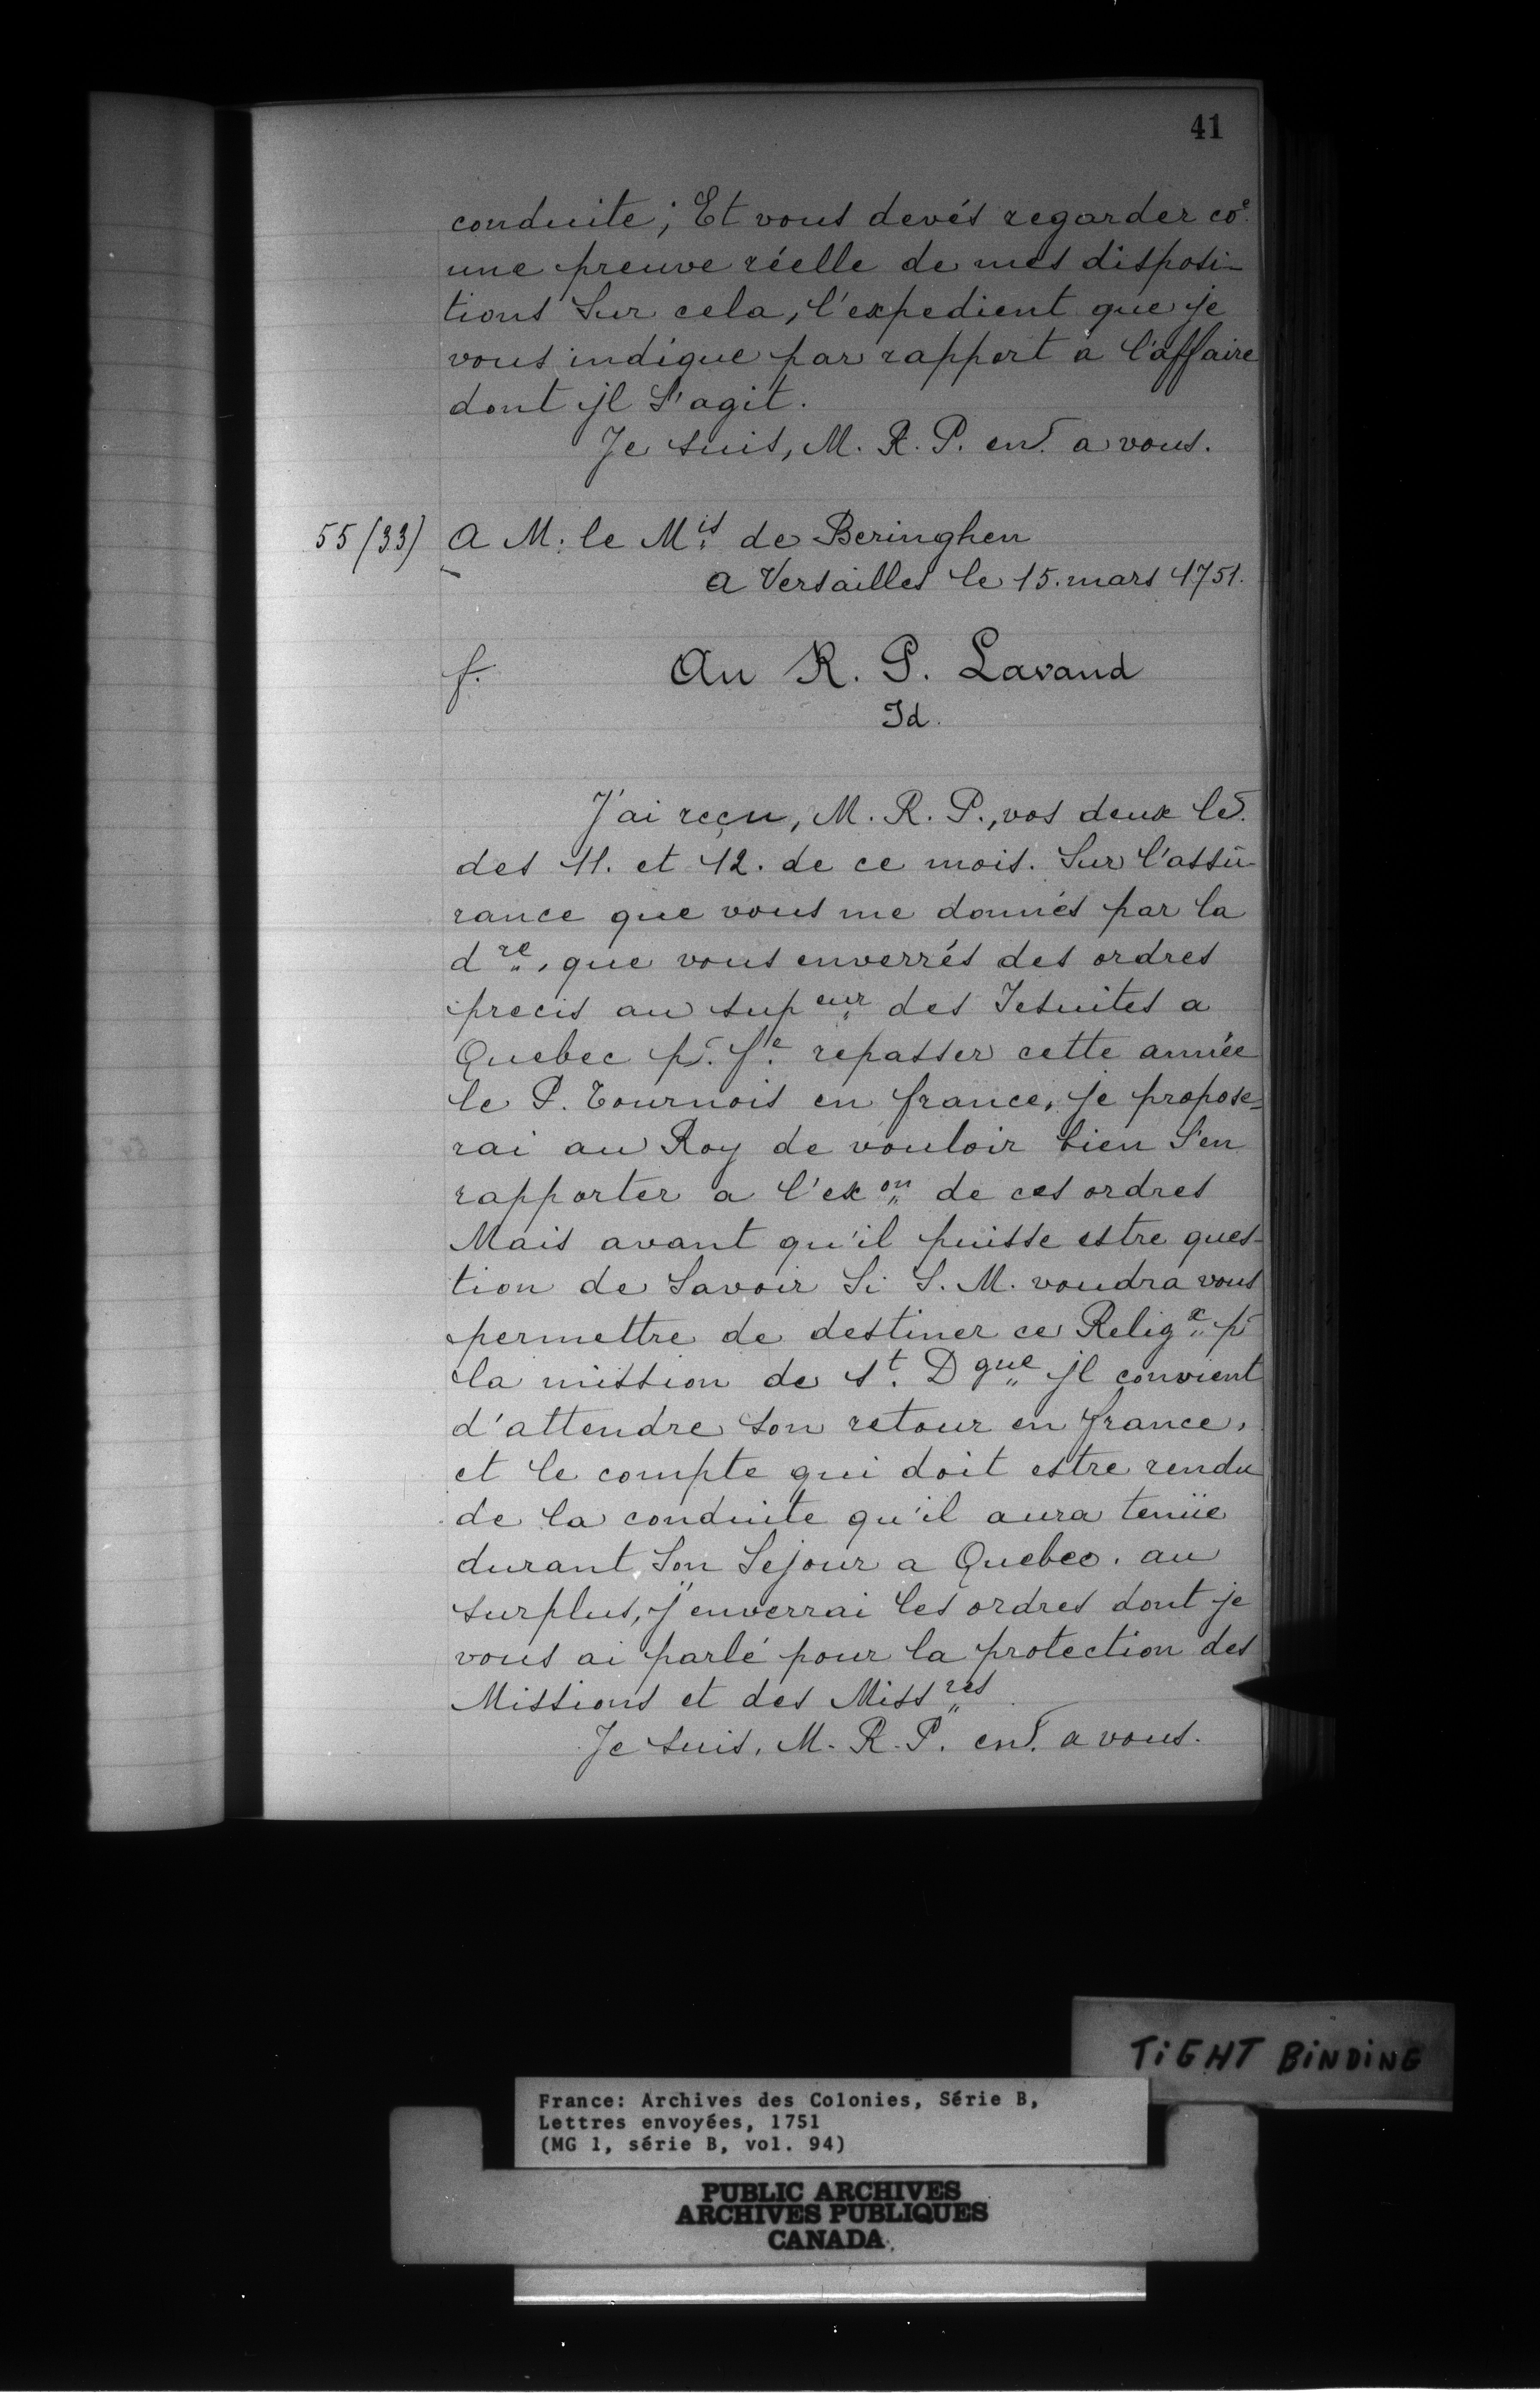 41
conduite; Et vous devés regarder coe.
une preuve réelle de mes disposi-
tions Sur cela, l'expedient que je
vous indique par rapport a l'affaire
dont jl S'agit.
Je suis, M. R. P. ent. a vous.
55 (33) A M. le Mis de Beringhen
a Versailles le 15. mars 1751.
f. Au R. P. Lavaud
Id.
J'ai reçu, M. R. P., vos deux le
des 11. et 12. de ce mois. Sur l'assû-
rance que vous me donnés par la
dre, que vous enverrés des ordres
precis au supeur des Jesuites a
Quebec pr. fe. repasser cette année
le P. Tournois en france, je propose=
rai au Roy de vouloir bien S'en
rapporter a l'exon de ces ordres
Mais avant qu'il puisse estre ques-
tion de Savoir Si S. M. voudra vous
permettre de destiner ce Religx pr
la mission de St. Dgue jl convient
d'attendre son retour en france,
et le compte qui doit estre rendu
de la conduite qu'il aura tenüe
durant Son Sejour a Quebec. au
surplus, j'enverrai les ordres dont je
vous ai parlé pour la protection des
Missions et des Missres
Je suis, M. R. P. ent. a vous.
TIGHT BINDING
France: Archives des Colonies, Série B,
Lettres envoyées, 1751
(MG 1, série B, vol. 94)
PUBLIC ARCHIVES
ARCHIVES PUBLIQUES
CANADA